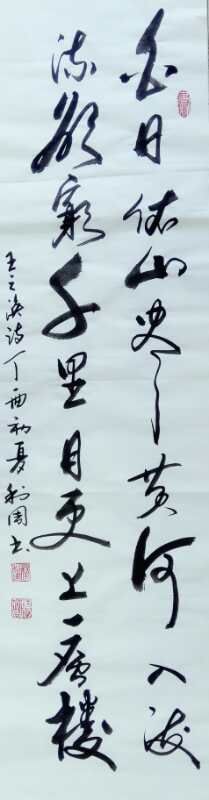 白日依山尽黄河入海
流欲窮千里目更上一层楼
王之涣诗丁酉初夏利国书